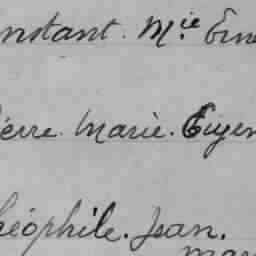 nstant. M.ie Erne
ierre. Marie. Eugen
héophile. Jean.
mar